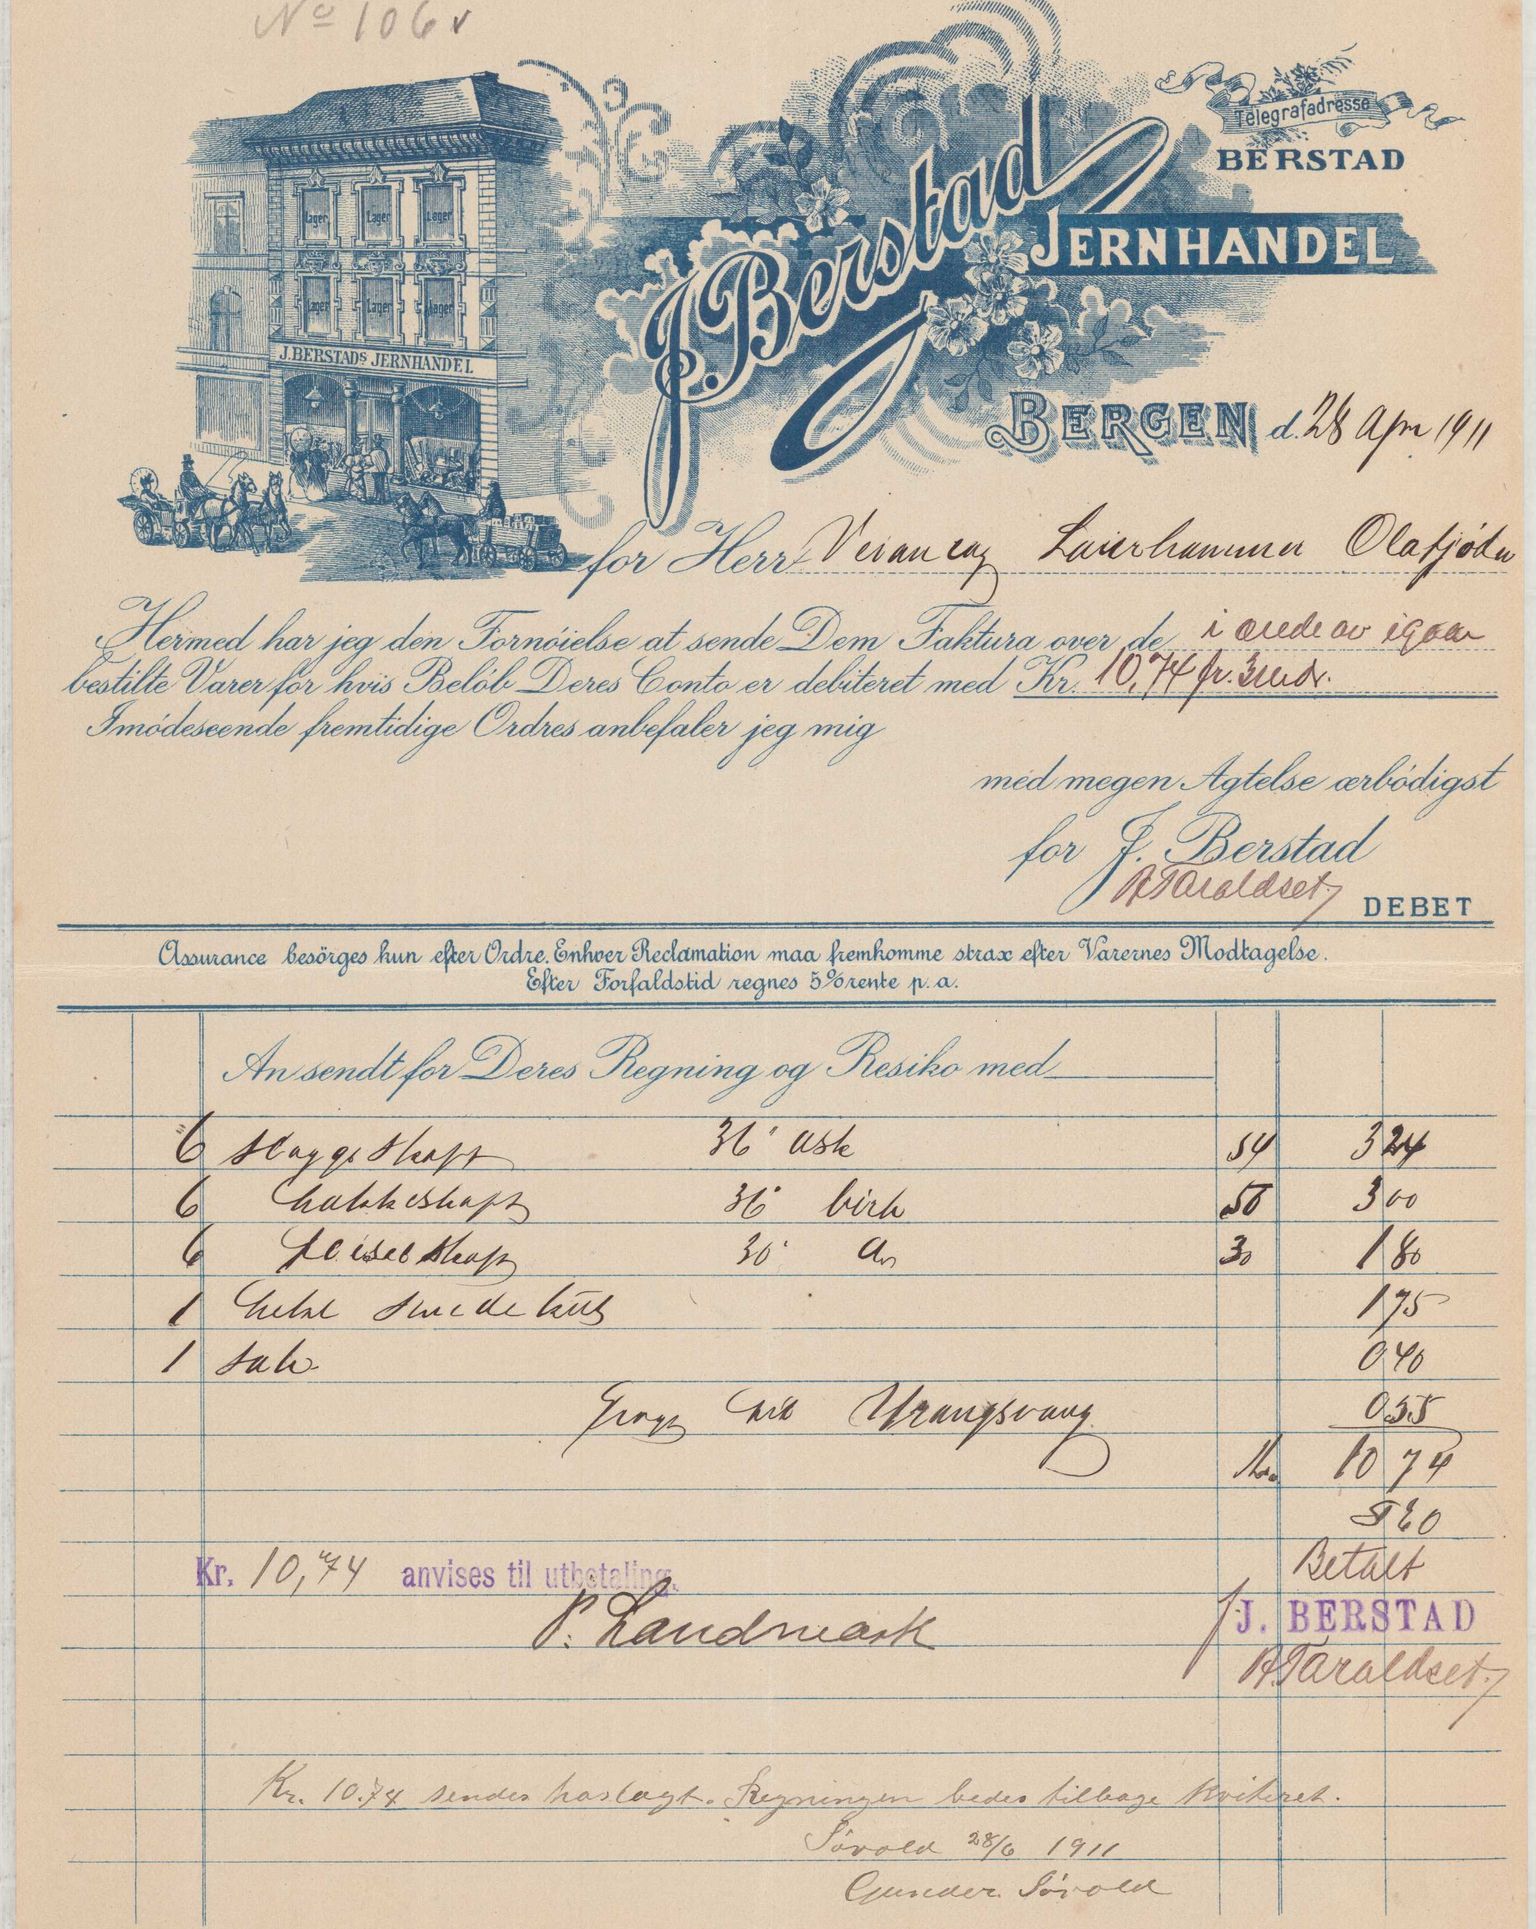 No 106
Lager Lager Lager
Lager Lager Lager
J. BERSTADS JERNHANDEL
Telegrafadresse
BERSTAD
J. Berstad
JERNHANDEL
BERGEN d. 28 Apr 1911
for Herr
Hermed har jeg den Fornöielse at sende Dem Faktura over de i
bestilte Varer for hvis Belöb Deres Conto er debiteret med Kr. 10,74 pr. 3 mdr.
Imödeseende fremtidige Ordres anbefaler jeg mig
med megen Agtelse ærbödigst
for J. Berstad
Taraldset
DEBET
Assurance besörges kun efter Ordre. Enhver Reclamation maa fremkomme strax efter Varernes Modtagelse.
Efter Forfaldstid regnes 5% rente p. a.
An sendt for Deres Regning og Resiko med
6 slæggeskaft 36" ask 54 3 24
6 hakkeskaft 36" birk 50 3 00
6 feiselskaft 30" do 30 1 80
1 1 75
1 sæk 0 40
Vrangsvaag 0 55
Kr. 10 74
Kr. 10,74 anvises til utbetaling.
P. Landmark
Betalt
J. BERSTAD
Taraldset
Kr. 10.74 sendes vaslagt. Regningen bedes tilbage kvitteret.
Sövold 28/6 1911
Gunder Sövold